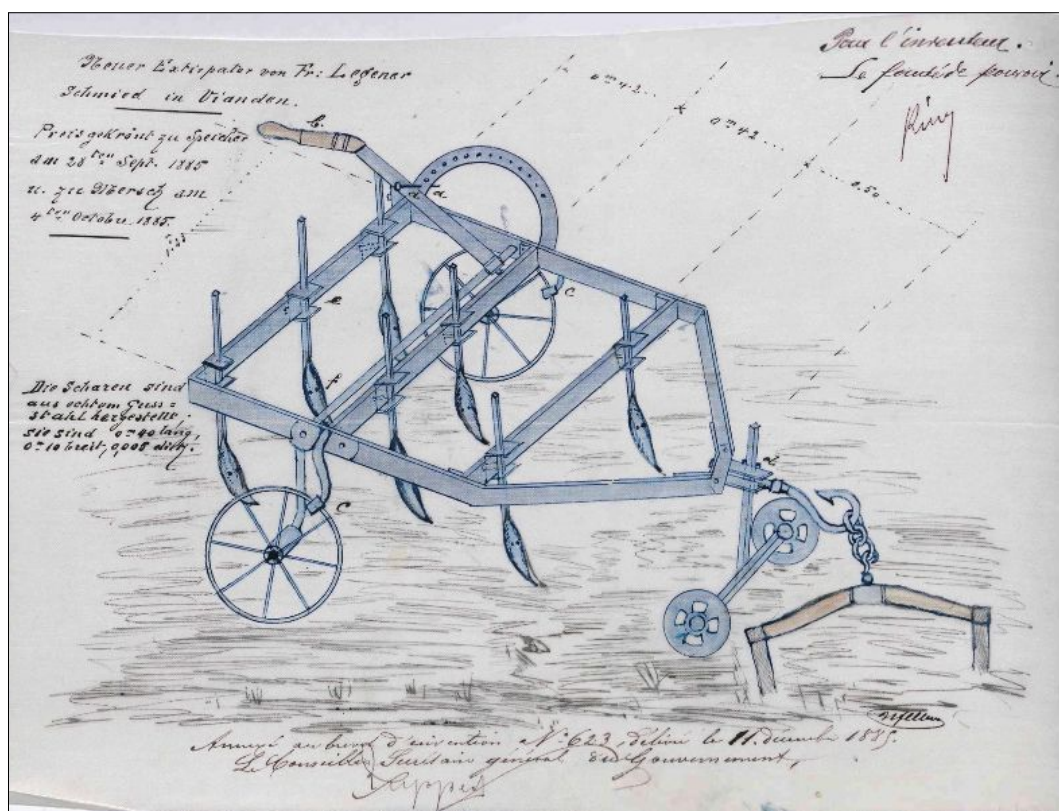 Neuer Extirpator von Fr: Legener
Schmied in Vianden.
Preisgekrönt zu Speicher
am 28ten Sept. 1885
u. zu Mersch am
4ten Octobre 1885.
Pour l'inventeur.
Le fondé de pouvoir.
0m42
0m42
0.50
b.
a
c
e
f
c
d
Die Scharen sind
aus echtem Guss=
stahl hergestellt;
sie sind 0m40 lang,
0m10 breit, 0,008 dick.
Annexé au brevet d'invention No 623, délivré le 11. décembre 1885.
Le Conseiller Secrétaire général du Gouvernement,